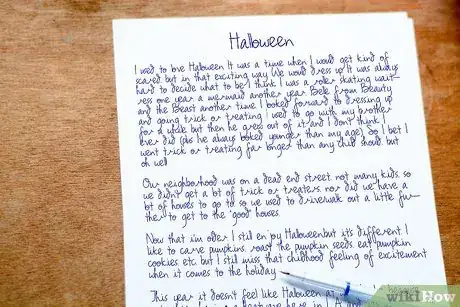 Halloween
I used to love Halloween It was a time when I would get kind of
scared but in that exciting way We would dress up It was always
hard to decide what to be I think I was a roller skating wait-
ress one year a mermaid another year Belle from Beauty
and the Beast another time I looked forward to dressing up
and going trick or treating I used to go with my brother
for a while but then he grew out of it and I don't think I
ever did (plus I've always looked younger than my age) So I bet I
went trick or treating far longer than any child should but
oh well
Our neighborhood was on a dead end street not many kids, so
we didn't get a lot of trick or treaters nor did we have a
lot of houses to go to so we used to drive/walk out a little fu-
rther to get to the "good" houses
Now that I'm older I still enjoy Halloween but it's different I
like to carve pumpkins, roast the pumpkin seeds, eat pumpkin
cookies, etc but I still miss that childhood feeling of excitement
when it comes to the holiday
This year it doesn't feel like Halloween
here in L.A.
wikiHow